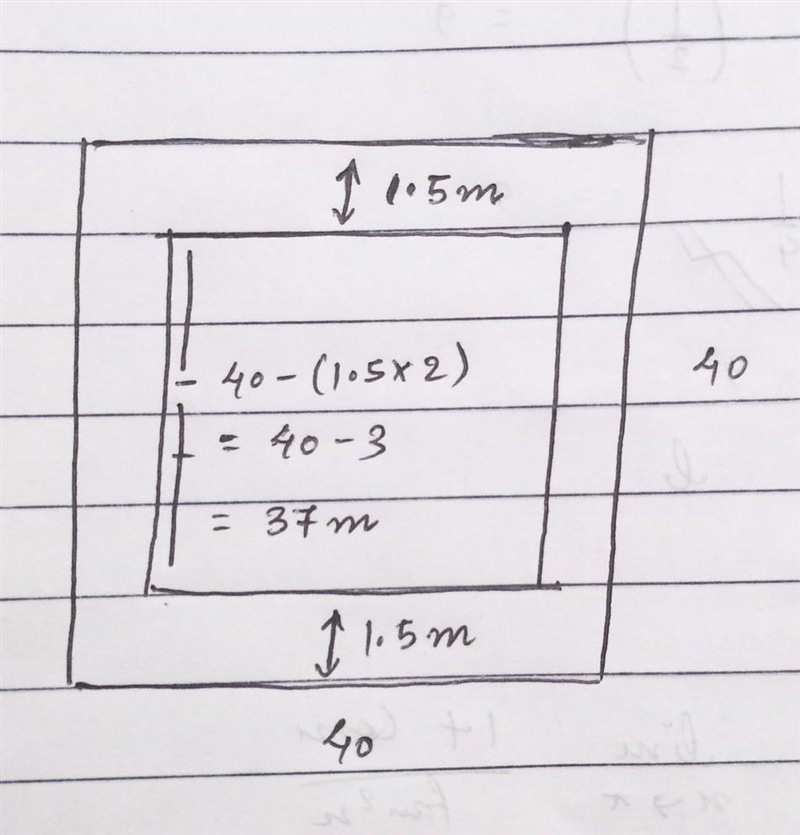 1.5m
- 40 - (1.5 × 2)
= 40 - 3
= 37m
40
1.5m
40